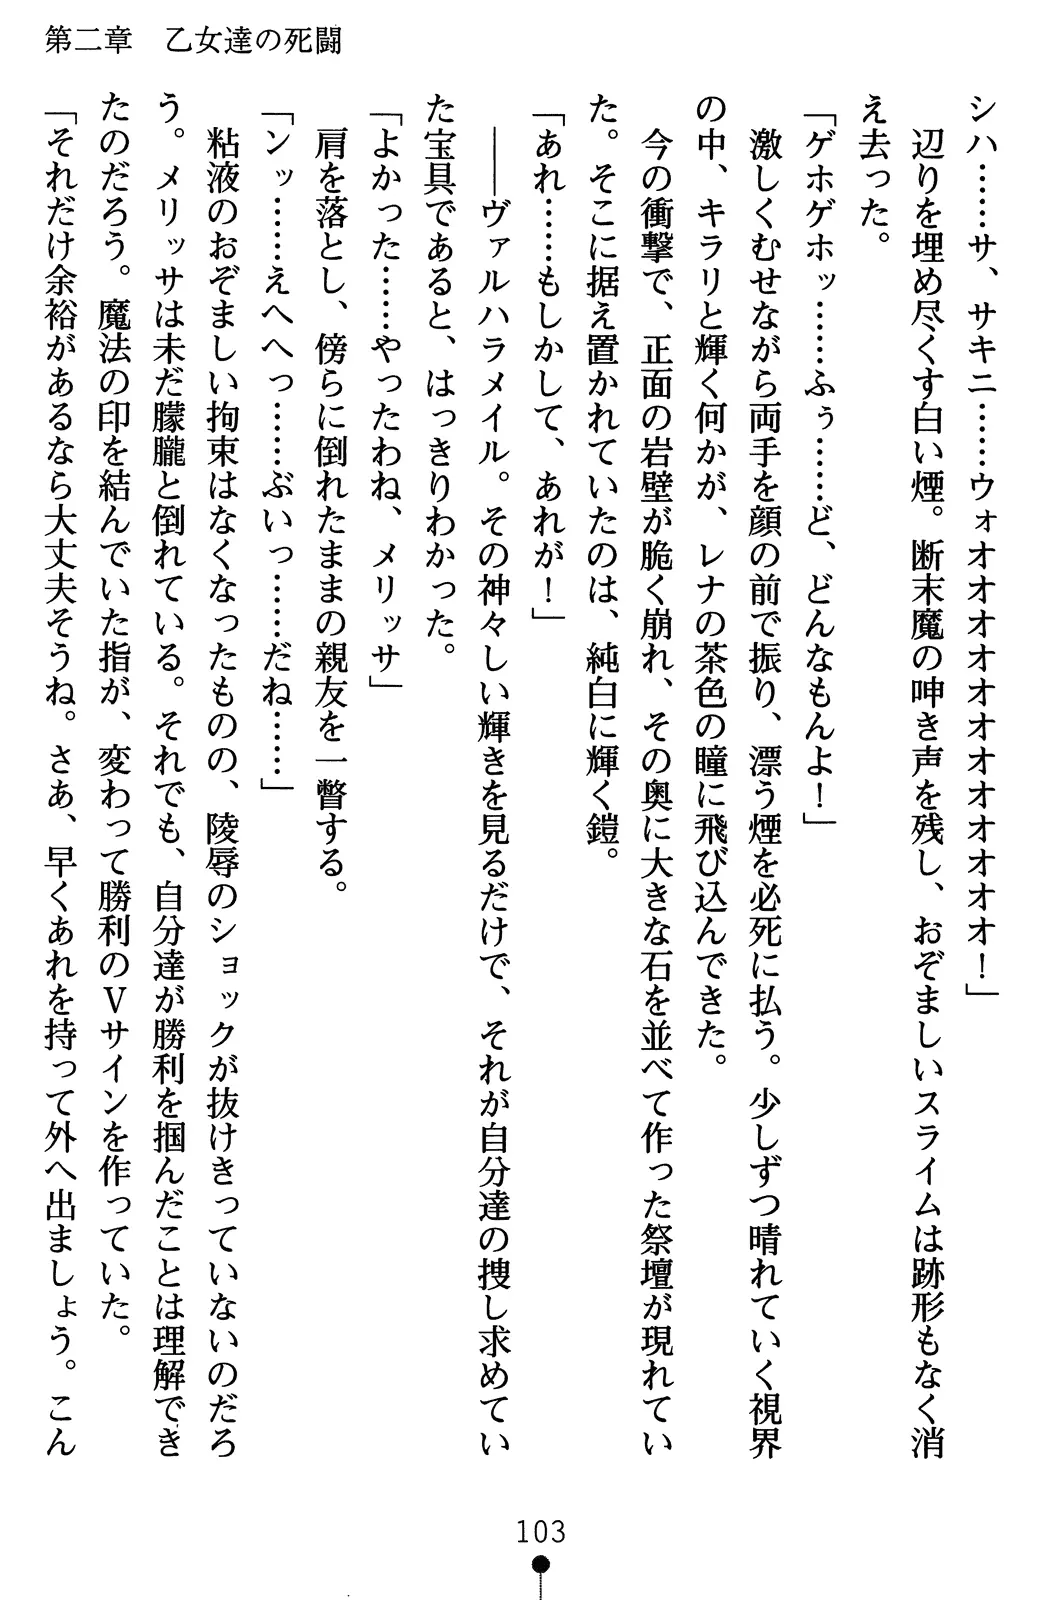 第二章　乙女達の死闘
シハ……サ、サキニ……ウォオオオオオオオオオオオオ！」
　辺りを埋め尽くす白い煙。断末魔の呻き声を残し、おぞましいスライムは跡形もなく消
え去った。
「ゲホゲホッ……ふぅ……ど、どんなもんよ！」
　激しくむせながら両手を顔の前で振り、漂う煙を必死に払う。少しずつ晴れていく視界
の中、キラリと輝く何かが、レナの茶色の瞳に飛び込んできた。
　今の衝撃で、正面の岩壁が脆く崩れ、その奥に大きな石を並べて作った祭壇が現れてい
た。そこに据え置かれていたのは、純白に輝く鎧。
「あれ……もしかして、あれが！」
　――ヴァルハラメイル。その神々しい輝きを見るだけで、それが自分達の捜し求めてい
た宝具であると、はっきりわかった。
「よかった……やったわね、メリッサ」
　肩を落とし、傍らに倒れたままの親友を一瞥する。
「ンッ……えへへっ……ぶいっ……だね……」
　粘液のおぞましい拘束はなくなったものの、陵辱のショックが抜けきっていないのだろ
う。メリッサは未だ朦朧と倒れている。それでも、自分達が勝利を掴んだことは理解でき
たのだろう。魔法の印を結んでいた指が、変わって勝利のＶサインを作っていた。
「それだけ余裕があるなら大丈夫そうね。さあ、早くあれを持って外へ出ましょう。こん
103